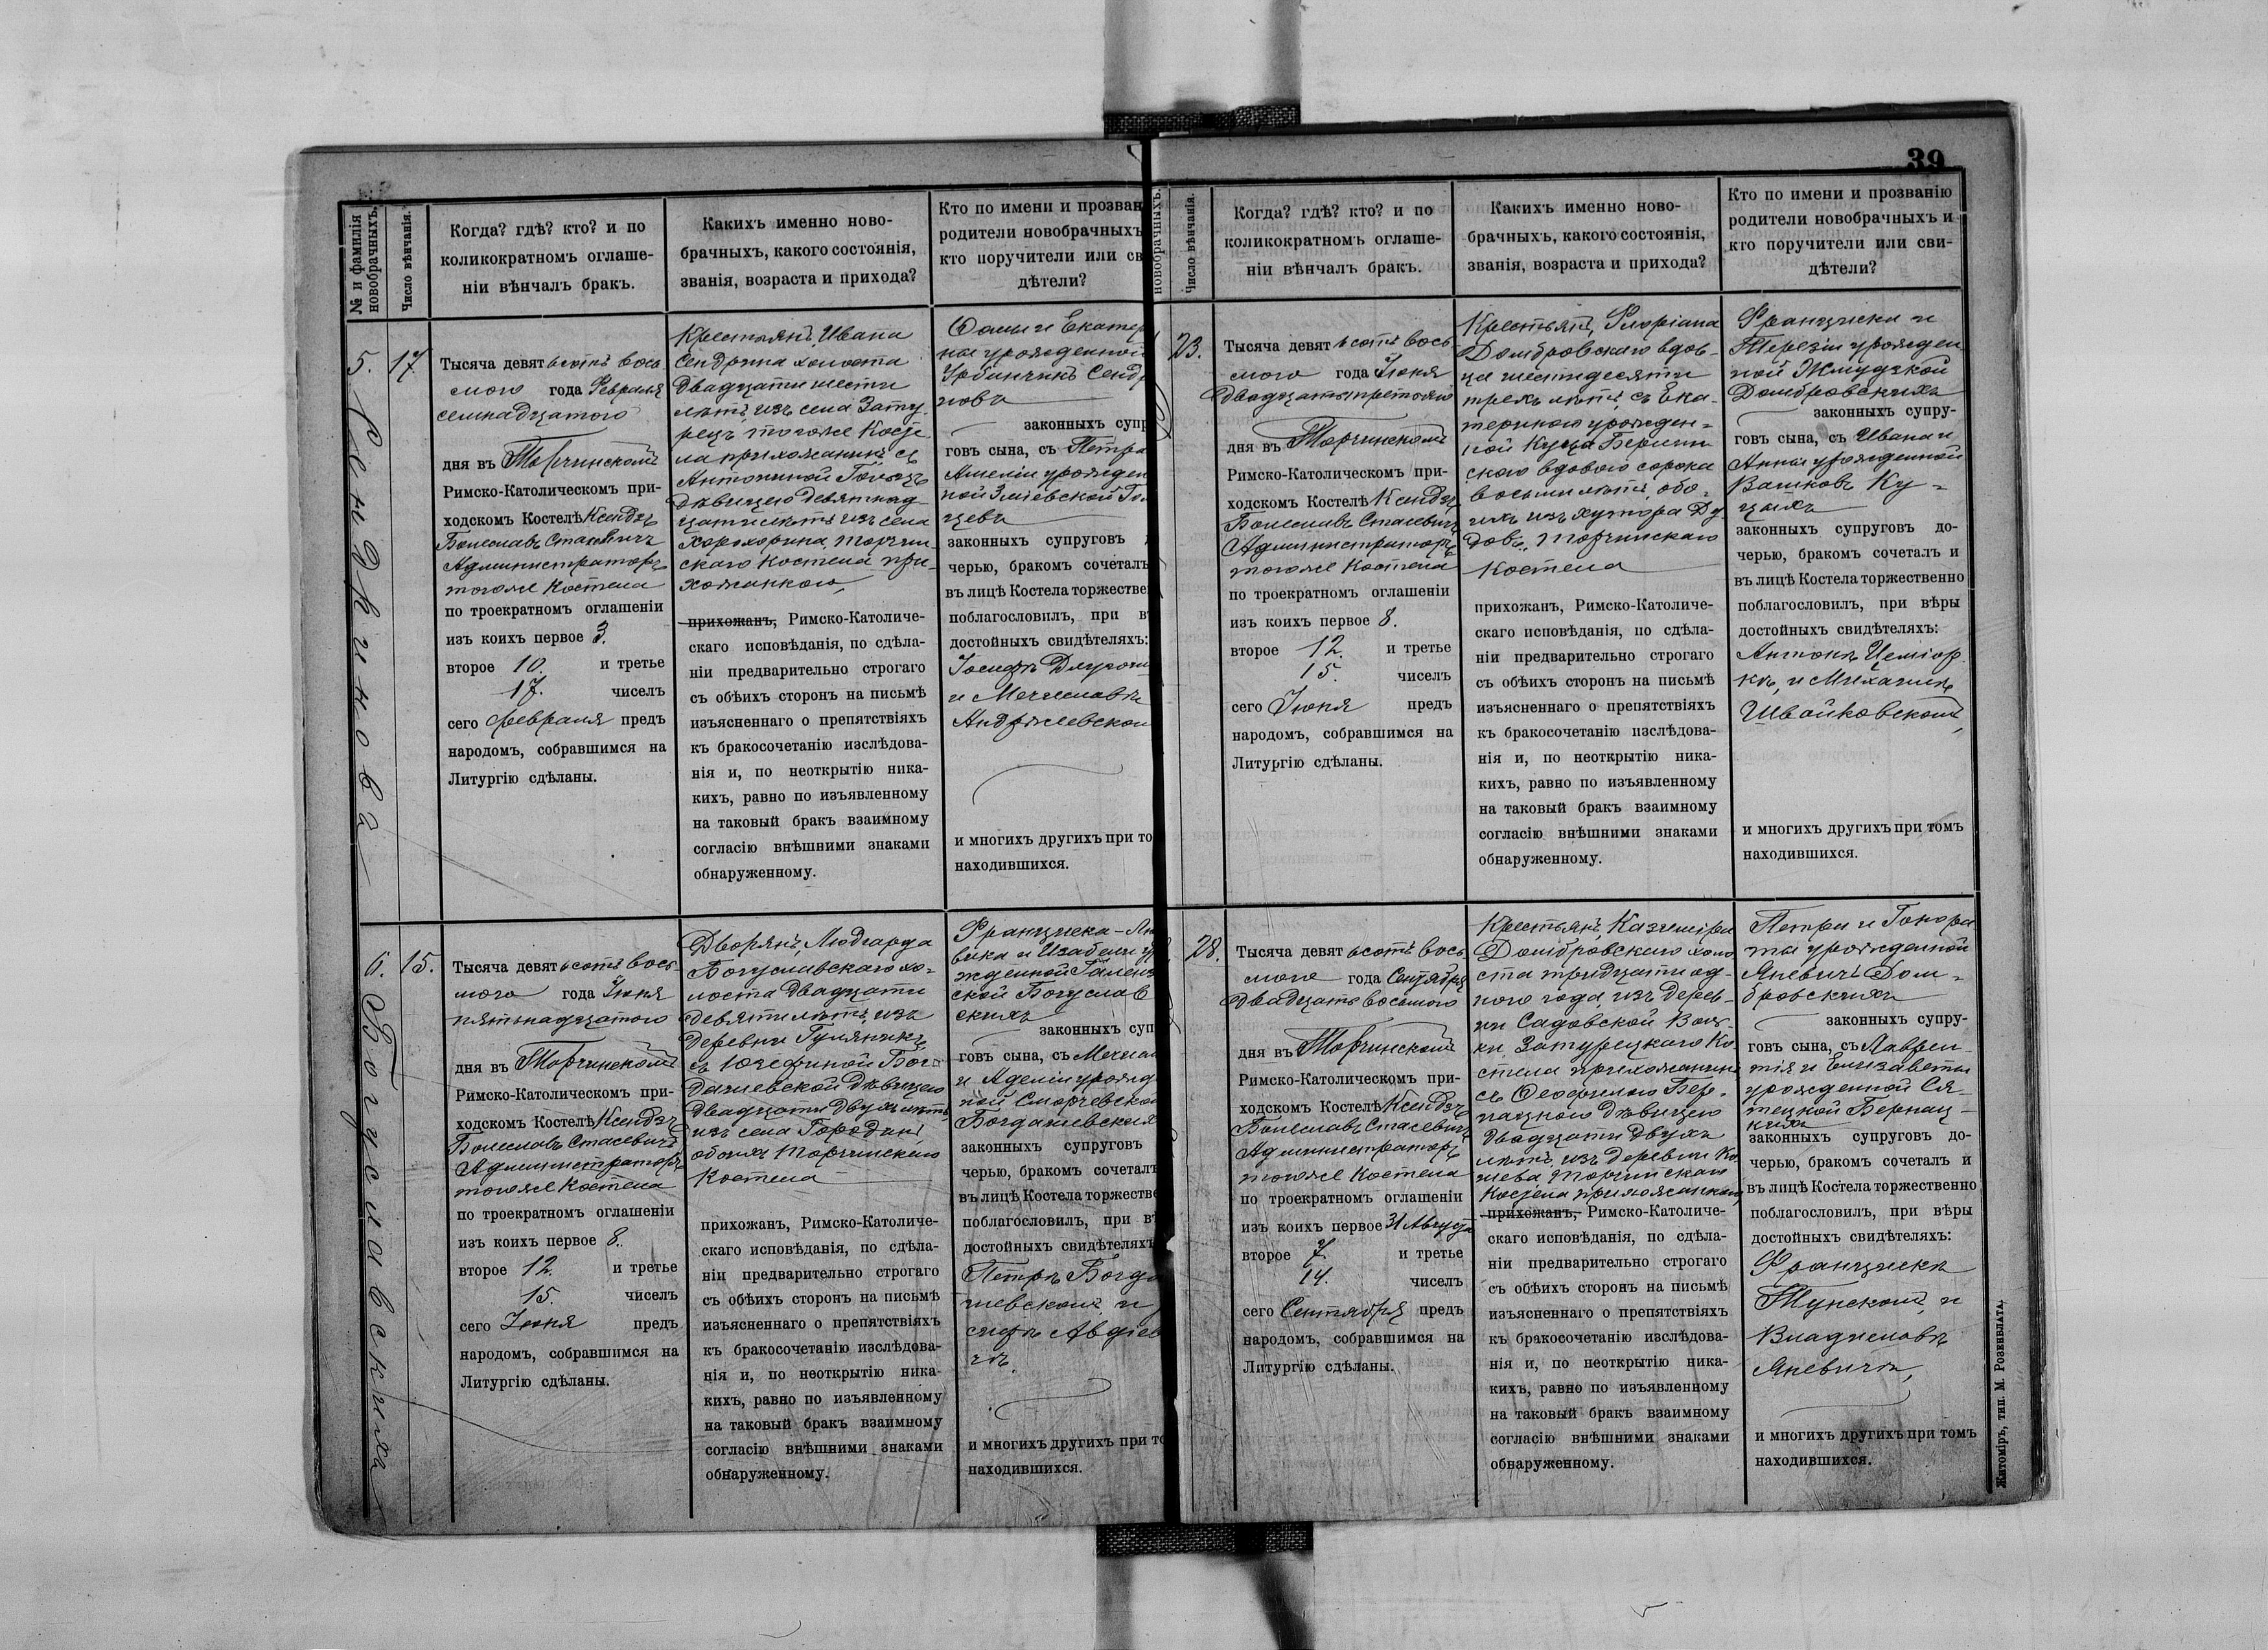 39
№ и фамилія новобрачныхъ.
Число вѣнчанія.
Когда? гдѣ? кто? и по
коликократномъ оглаше-
ніи вѣнчалъ бракъ.
Каких​ъ именно ново-
брачныхъ, какого состоянія,
званія, возраста и прихода?
Кто по имени и прозван
родители новобрачныхъ
кто поручители или св
дѣтели?
5.
17
Тысяча девятьсотъ вось
мого года Февраля
семнадцатого
дня въ Торчинскомъ
Римско-Католическомъ при-
ходскомъ Костелѣ Ксендзъ
Болеславъ Стасевичъ
Администраторъ
тогоже Костела
по троекратномъ оглашеніи
изъ коихъ первое 3.
второе 10. и третье
17. чиселъ
сего февраля предъ
народомъ, собравшимся на
Литургію сдѣланы.
Крестьянъ, Ивана
Сендрина холоста
двадцати шести
лѣтъ изъ села Зату
рецъ тогоже Косте
ла прихожанинъ съ
Антониной
дѣвицею девятнад
цати лѣтъ изъ села
Хорохорина, Торчин
скаго Костела при-
хожанкою,
прихожанъ, Римско-Католиче-
скаго исповѣданія, по сдѣла-
ніи предварительно строгаго
съ обѣихъ сторонъ на письмѣ
изъясненнаго о препятствіяхъ
къ бракосочетанію изслѣдова-
нія и, по неоткрытію ника-
кихъ, равно по изъявленному
на таковый бракъ взаимному
согласію внѣшними знаками
обнаруженному.
Фомы и Екатер
ны урожденной
Урбанчикъ Сендр
новъ
законныхъ супр
говъ сына, съ Петра
Амеліи урожден
ной Зміевской
цевъ
законныхъ супруговъ
черью, бракомъ сочеталъ
въ лицѣ Костела торжестве
поблагословилъ, при в
достойныхъ свидѣтеляхъ:
Іосифъ
и Мечиславъ
Андржеевскомъ
и многихъ другихъ при то
находившихся.
6.
15.
Богуславскихъ
Тысяча девятьсотъ вось-
мого года Іюня
пятьнадцатого
дня въ Торчинскомъ
Римско-Католическомъ при-
ходскомъ Костелѣ Ксендзъ
Болеславъ Стасевичъ
Администраторъ
тогоже Костела
по троекратномъ оглашеніи
изъ коихъ первое 8.
второе 12. и третье
15. чиселъ
сего Іюня предъ
народомъ, собравшимся на
Литургію сдѣланы.
Дворянъ, Людгарда
Богуславскаго хо-
лоста двадцати
девяти лѣтъ, изъ
деревни Гуляникъ
съ Юзефиной Бог-
дашевской дѣвицею
двадцати двухъ лѣтъ
изъ села Городки,
обоихъ Торчинскаго
Костела
прихожанъ, Римско-Католиче-
скаго исповѣданія, по сдѣла-
ніи предварительно строгаго
съ обѣихъ сторонъ на письмѣ
изъясненнаго о препятствіяхъ
къ бракосочетанію изслѣдова-
нія и, по неоткрытію ника-
кихъ, равно по изъявленному
на таковый бракъ взаимному
согласію внѣшними знаками
обнаруженному.
Франциска-Лю
вика и Изабели ур
жденной
ской Богуслав
скихъ
законныхъ суп
говъ сына, съ
и Аделіи урожд
ной Сморчевской
Богдашевскихъ
законныхъ супруговъ
черью, бракомъ сочеталъ
въ лицѣ Костела торжестве
поблагословилъ, при в
достойныхъ свидѣтеляхъ
Петръ Богда
шевскомъ и
сифъ Авдіев
чъ.
и многихъ другихъ при то
находившихся.
новобрачныхъ.
Число вѣнчанія.
Когда? гдѣ? кто? и по
коликократномъ оглаше-
ніи вѣнчалъ бракъ.
Какихъ именно ново-
брачныхъ, какого состоянія,
званія, возраста и прихода?
Кто по имени и прозванію
родители новобрачныхъ и
кто поручители или сви-
дѣтели?
23.
Тысяча девятьсотъ вось
мого года Іюня
двадцатьтретьяго
дня въ Торчинскомъ
Римско-Католическомъ при-
ходскомъ Костелѣ Ксендзъ
Болеславъ Стасевичъ
Администраторъ
тогоже Костела
по троекратномъ оглашеніи
изъ коихъ первое 8.
второе 12. и третье
15. чиселъ
сего Іюня предъ
народомъ, собравшимся на
Литургію сдѣланы.
Крестьянъ, Флоріана
Домбровскаго вдов-
ца шестидесяти
трехъ лѣтъ, съ Ека-
териною урожден-
ной Куца
скаго вдовою сорока
восьми лѣтъ, обо-
ихъ изъ хутора Ду
бовъ, Торчинскаго
Костела
прихожанъ, Римско-Католиче-
скаго исповѣданія, по сдѣла-
ніи предварительно строгаго
съ обѣихъ сторонъ на письмѣ
изъясненнаго о препятствіяхъ
къ бракосочетанію изслѣдова-
нія и, по неоткрытію ника-
кихъ, равно по изъявленному
на таковый бракъ взаимному
согласію внѣшними знаками
обнаруженному.
Франциска и
Терезіи урожден
ной Жмудзкой
Домбровскихъ
законныхъ супру-
говъ сына, съ Ивана и
Анны урожденной
Вашковъ Ку-
цыхъ
законныхъ супруговъ до-
черью, бракомъ сочеталъ и
въ лицѣ Костела торжественно
поблагословилъ, при вѣры
достойныхъ свидѣтеляхъ:
Антонъ
и Михаилъ
Швайковскомъ,
и многихъ другихъ при томъ
находившихся.
28.
Тысяча девятьсотъ вось
мого года Сентября
двадцатьвосьмого
дня въ Торчинскомъ
Римско-Католическомъ при-
ходскомъ Костелѣ Ксендзъ
Болеславъ Стасевичъ
Администраторъ
тогоже Костела
по троекратномъ оглашеніи
изъ коихъ первое 31 Августа
второе 7. и третье
14. чиселъ
сего Сентября предъ
народомъ, собравшимся на
Литургію сдѣланы.
Крестьянъ, Казиміра
Домбровскаго холо
ста тридцати од-
ного года, изъ дерев-
ни Садовской Воль-
ки, Затурецкаго Ко
стела прихожанинъ
съ Теофилею Бер-
нацкою дѣвицею
двадцати двухъ
лѣтъ, изъ деревни Ко
шева Торчинскаго
Костела прихожанкою,
прихожанъ, Римско-Католиче-
скаго исповѣданія, по сдѣла-
ніи предварительно строгаго
съ обѣихъ сторонъ на письмѣ
изъясненнаго о препятствіяхъ
къ бракосочетанію изслѣдова-
нія и, по неоткрытію ника-
кихъ, равно по изъявленному
на таковый бракъ взаимному
согласію внѣшними знаками
обнаруженному.
Петра и Гонора
ты урожденной
Яневичъ Дом-
бровскихъ
законныхъ супру-
говъ сына, съ Лаврен-
тія и Елизаветы
урожденной Ся-
тецкой Бернац-
кихъ
законныхъ супруговъ до-
черью, бракомъ сочеталъ и
въ лицѣ Костела торжественно
поблагословилъ, при вѣры
достойныхъ свидѣтеляхъ:
Францискъ
Тунскомъ и
Владиславъ
Яневичъ,
и многихъ другихъ при томъ
находившихся.
Житоміръ, тип. М. Розенблата.